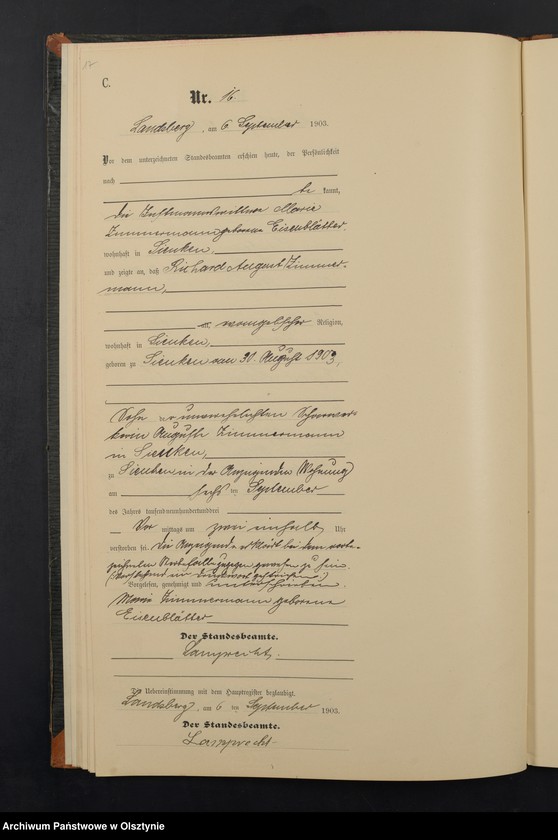 17
C.
Nr. 16.
Landsberg, am 6 September 1903.
Vor dem unterzeichneten Standesbeamten erschien heute, der Persönlichkeit
nach
be kannt,
die Instmannswittwe Marie
Zimmermann geborene Eisenblätter
wohnhaft in Sienken,
und zeigte an, daß Richard August Zimmer-
mann,
evangelischer Religion,
wohnhaft in Sienken,
geboren zu Sienken am 30. August 1903,
Sohn der unverehelichten Scharwer-
kerin Auguste Zimmermann
in Sienken,
zu Sienken in der Anzeigenden Wohnung
am sechs ten September
des Jahres tausendneunhundertunddrei
Vor mittags um zwei einhalb Uhr
verstorben sei. Die Anzeigende erklärt bei dem vorbe-
zugegen gewesen zu sein
(Vorstehend ein Druckwort gestrichen)
Vorgelesen, genehmigt und unterschrieben.
Marie Zimmermann geborene
Eisenblätter
Der Standesbeamte.
Lamprecht.
Die Uebereinstimmung mit dem Hauptregister beglaubigt.
Landsberg, am 6 ten September 1903.
Der Standesbeamte.
Lamprecht
Archiwum Państwowe w Olsztynie